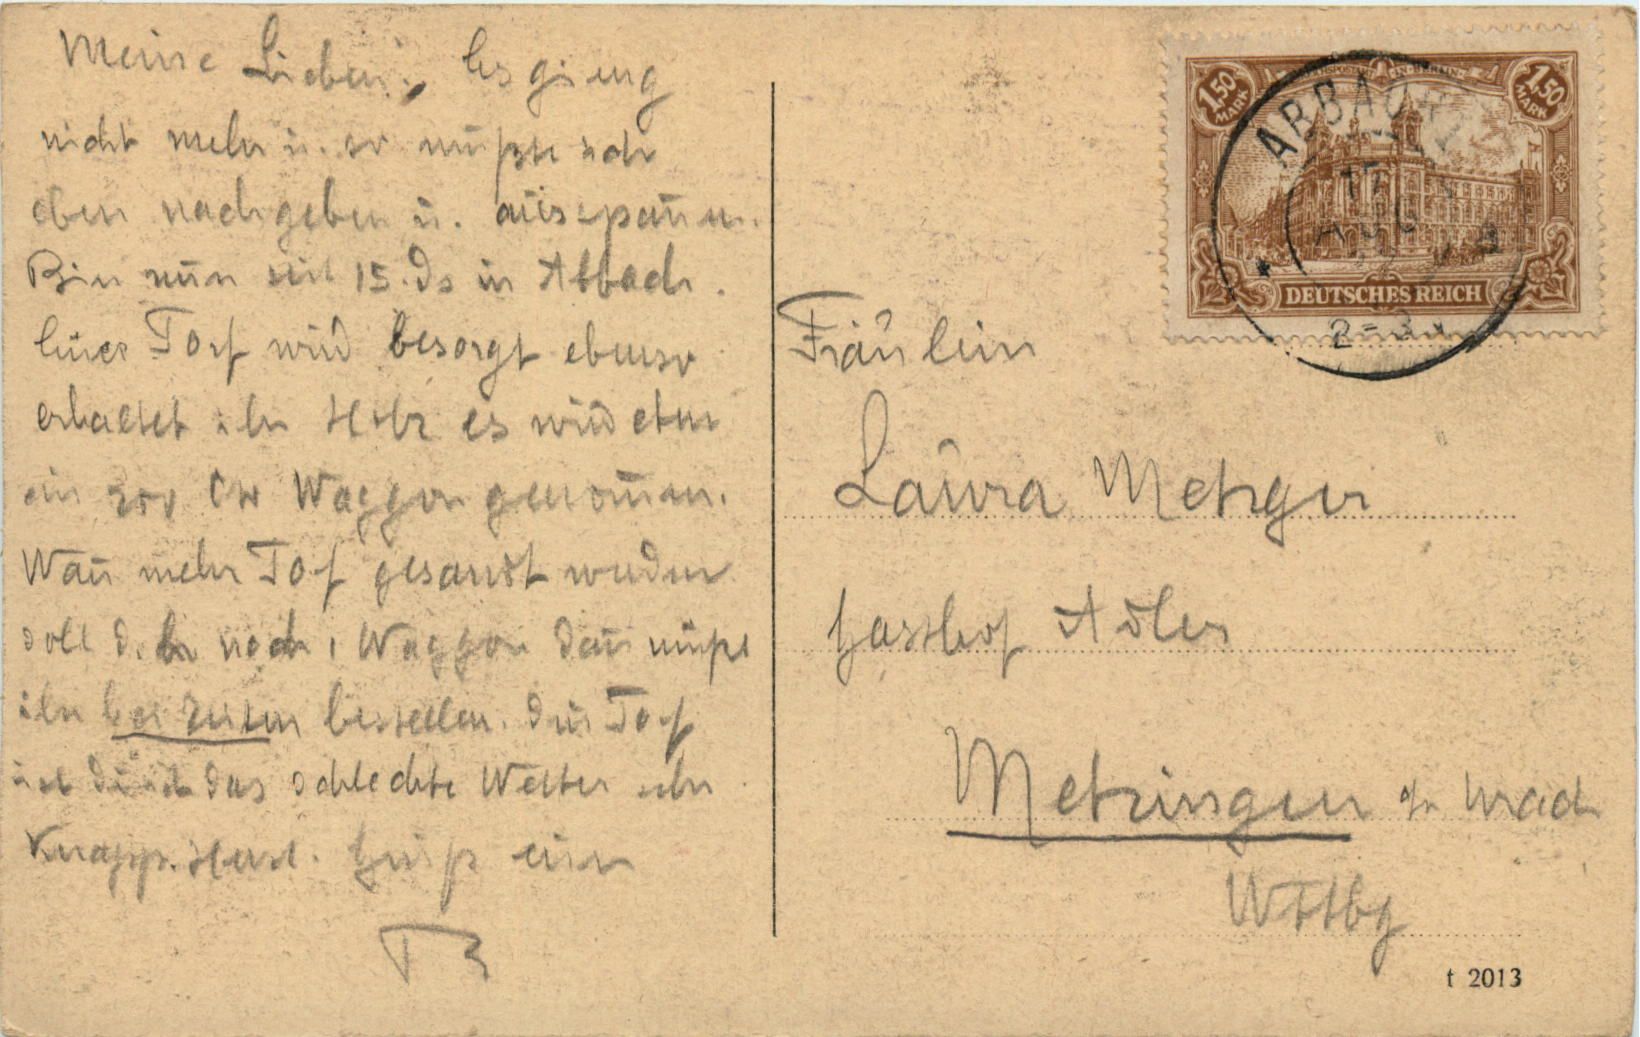 Meine Lieben, Es gieng
nicht mehr u. so mußte ich
eben nachgeben u. ausspann̄en.
Bin nun seit 15. ds in Abbach.
Euer Torf wird besorgt ebenso
erhaltet ihr Holz es wird etwa
ein 200 Ctr Waggon genom̄en.
Wan̄ mehr Torf gesandt werden
soll d. h. noch 1 Waggon dan̄ müßt
ihr bei Zeiten bestellen. Der Torf
ist durch das schlechte Wetter sehr
Knapp. Herzl. Gruß euer
1,50 MARK
1,50 MARK
REICHSPOSTAMT IN BERLIN
DEUTSCHES REICH
ABBACH
17
AUG
2-3
Fräulein
Laura Metzger
Gasthof Adler
Metzingen o/a Urach
Wttbg
t 2013